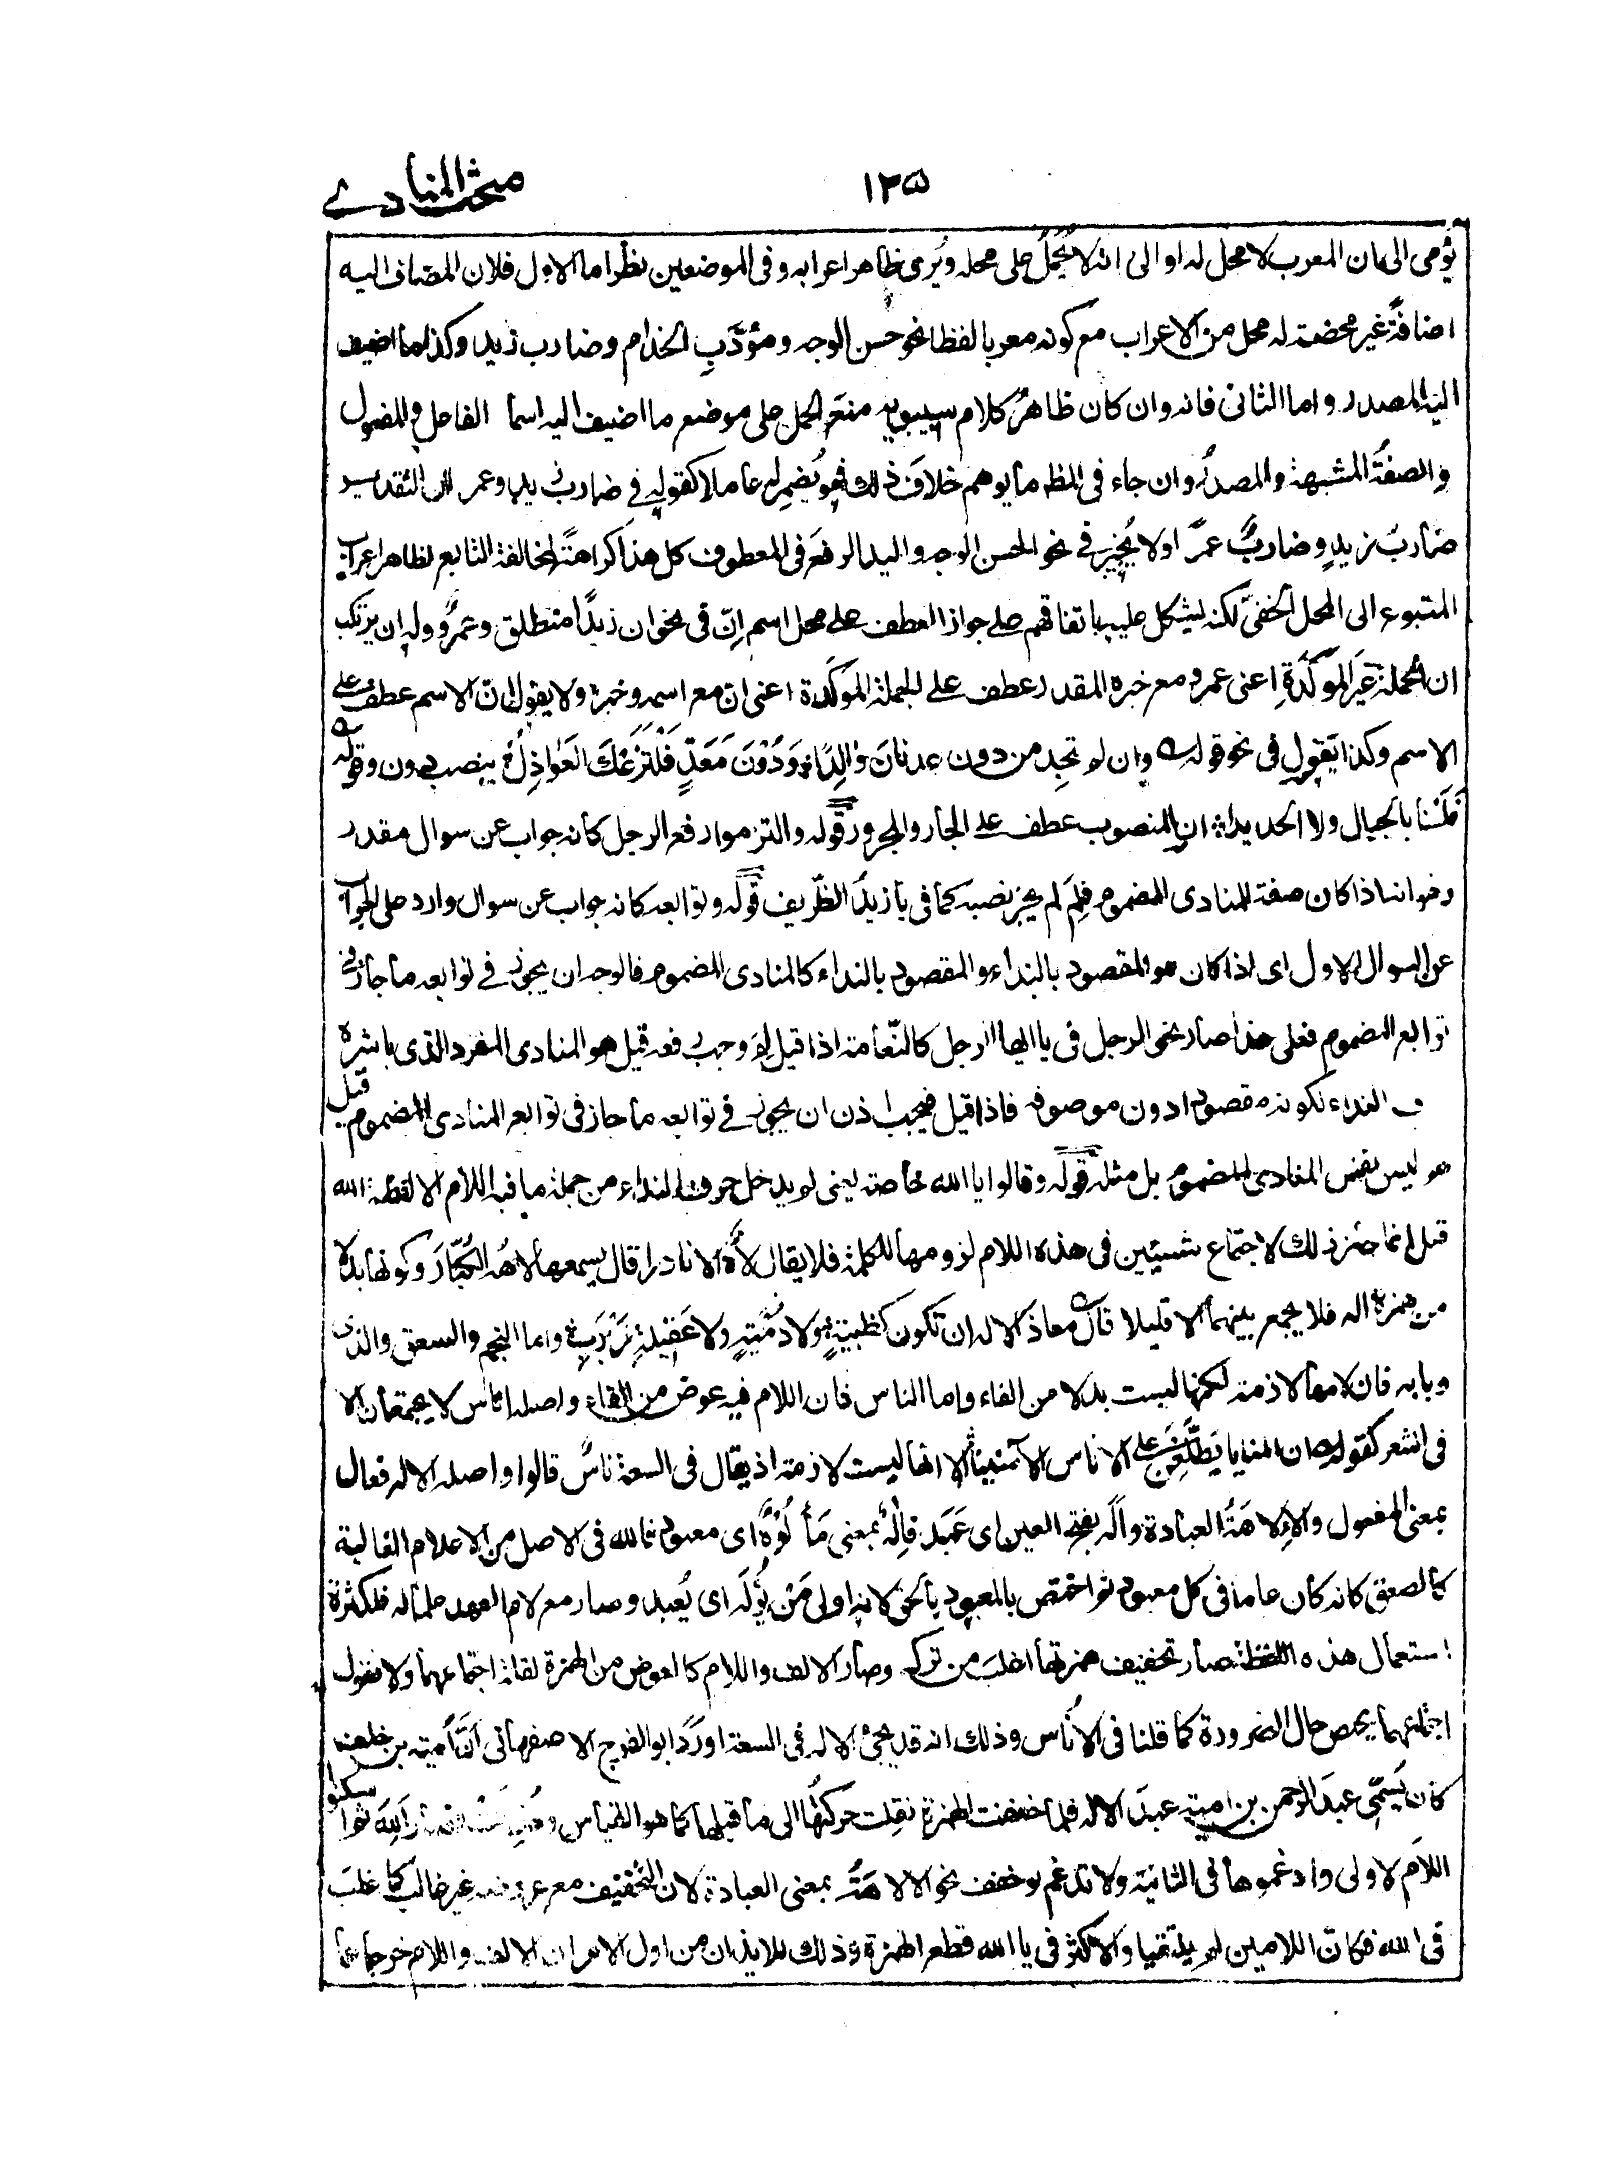 ١٢٥
مبحث المنادے
يؤمى الى ان المعرب لا محل له او الى انه لا يُحمَلُ على محله ويُرى ظاهر اعرابه وفى الموضعين نظر اما الاول فلان المضاف اليه
اضافةً غير محضة له محل من الاعراب مع كونه معربا لفظا نحو حسن الوجه ومؤدَّبِ الخدام وضارب زيد وكذا ما اضيف
اليه المصدر واما الثانى فانه وان كان ظاهرُ كلام سيبويه منعَ الحمل على موضع ما اضيف اليه اسما الفاعل والمفعول
والصفةُ المشبهة والمصدرُ وان جاء فى الظ ما يوهم خلافَ ذلك فهو يُضمِر له عاملا كقوله فے ضارب زيد وعمر ان التقدير
ضاربُ زيدٍ وضاربٌ عمرً اولا يُجيز فے نحو الحسن الوجه واليد الرفعَ فى المعطوف كل هذا كراهةً لمخالفة التابع لظاهر اعراب
المتبوع الى المحل الخفى لكنه يشكل عليه باتفاقهم على جواز العطف على محل اسم اِنّ فى نحو ان زيدًا منطلق وعمرٌو وله ان يرتكب
ان الجملة غيرَ المؤكَّدةِ اعنى عمرو مع خبره المقدر عطف على الجملة المؤكدة اعنى ان مع اسمه وخبره ولا يقول ان الاسم عطف على
الاسم وكذا يقول فى نحو قوله وان لم تجد من دون عدنان والِدًا ودُوْنَ مَعَدٍّ فَلْتَزَعْكَ العَواذِلُ بنصب دون وقوله
فَلَسْنا بالجبال ولا الحديدا ان المنصوب عطف على الجار والمجرور قوله والتزموا رفع الرجل كانه جواب عن سوال مقدر
وهو انه اذا كان صفة للمنادى المضموم فلِمَ لم يجز نصبه كما فى يا زيدُ الظّريف قوله وتوابعه كانه جواب عن سوال وارد على الجواب
عن السوال الاول اى اذا كان هو المقصود بالنداء والمقصود بالنداء كالمنادى المضموم فالوجه ان يجوز فے توابعه ما جاز فے
توابع المضموم فعلى هذا صار نحو الرجل فى يا ايها الرجل كالنّعامة اذا قيل لِمَ وجب رفعه قيل هو المنادى المفرد الذى باشره
النداء لكونه مقصودا دون موصوفه فاذا قيل فيجب اذن ان يجوز فے توابعه ما جاز فى توابع المنادى المضموم قيل
هو ليس بنفس المنادى المضموم بل مثله قوله وقالوا يا الله خاصة يعنى لم يدخل حرف النداء من جملة ما فيه اللام الا لفظة الله
قيل انما جاز ذلك لاجتماع شيئين فى هذه اللام لزومها للكلمة فلا يقال لاهٌ الا نادرا قال يسمعها لاهُه الكُبَّارُ وكونها بدلا
من همزة اله فلا يجمع بينهما الا قليلا قال معاذ الاله ان تكون كظبيةٍ ولا دميةٍ ولا عقيلةِ رَبْرَبٍ واما النجم والصعق والذى
وبابه فان لامها لازمة لكنها ليست بدلا من الفاء واما الناس فان اللام فيه عوض من الفاء واصله اناس لا يجتمعان الا
فى الشعر كقوله ان المنايا يَطَّلِعْنَ على الاناس الآمنينا الا انها ليست لازمة اذ يقال فى السعة ناسٌ قالوا واصله الاله فعال
بمعنى المفعول والالاهةُ العبادة واَلَه بفتح العين اى عَبَد فاِلٰهٌ بمعنى مَألُوْهٌ اى معبود فالله فى الاصل من الاعلام الغالبة
كالصعق كانه كان عاما فى كل معبود ثم اختص بالمعبود بالحق لانه اولى مَنْ يُؤلَه اى يُعبد وصار مع لام العهد علما له فلكثرة
استعمال هذه اللفظة صار تخفيف همزتها اغلب من تركه وصار الالف واللام كالعوض من الهمزة لقلة اجتماعهما ولا نقول
اجتماعهما يختص حال الضرورة كما قلنا فى الاُناس وذلك انه قد يجئ الاله فى السعة اورَدَ ابو الفرج الاصفهانى اَنَّ اُمية بن خلف
كان يُسمّى عبدَ الرحمن بن امية عبدَ الاله فلما خففت الهمزة نقلت حركتُها الى ما قبلها كما هو القياس وحُذفت فصار اَلِلَه ثم اسكنوا
اللام الاولى وادغموها فى الثانية ولا تدغم لو خفف نحو الالاهةُ بمعنى العبادة لان التخفيف مع عروضه غير غالب كما غلب
فى الله فكانّ اللامين لم يلتقيا والاكثر فى يا الله قطع الهمزة وذلك للايذان من اول الامر ان الالف واللام خرجا عما